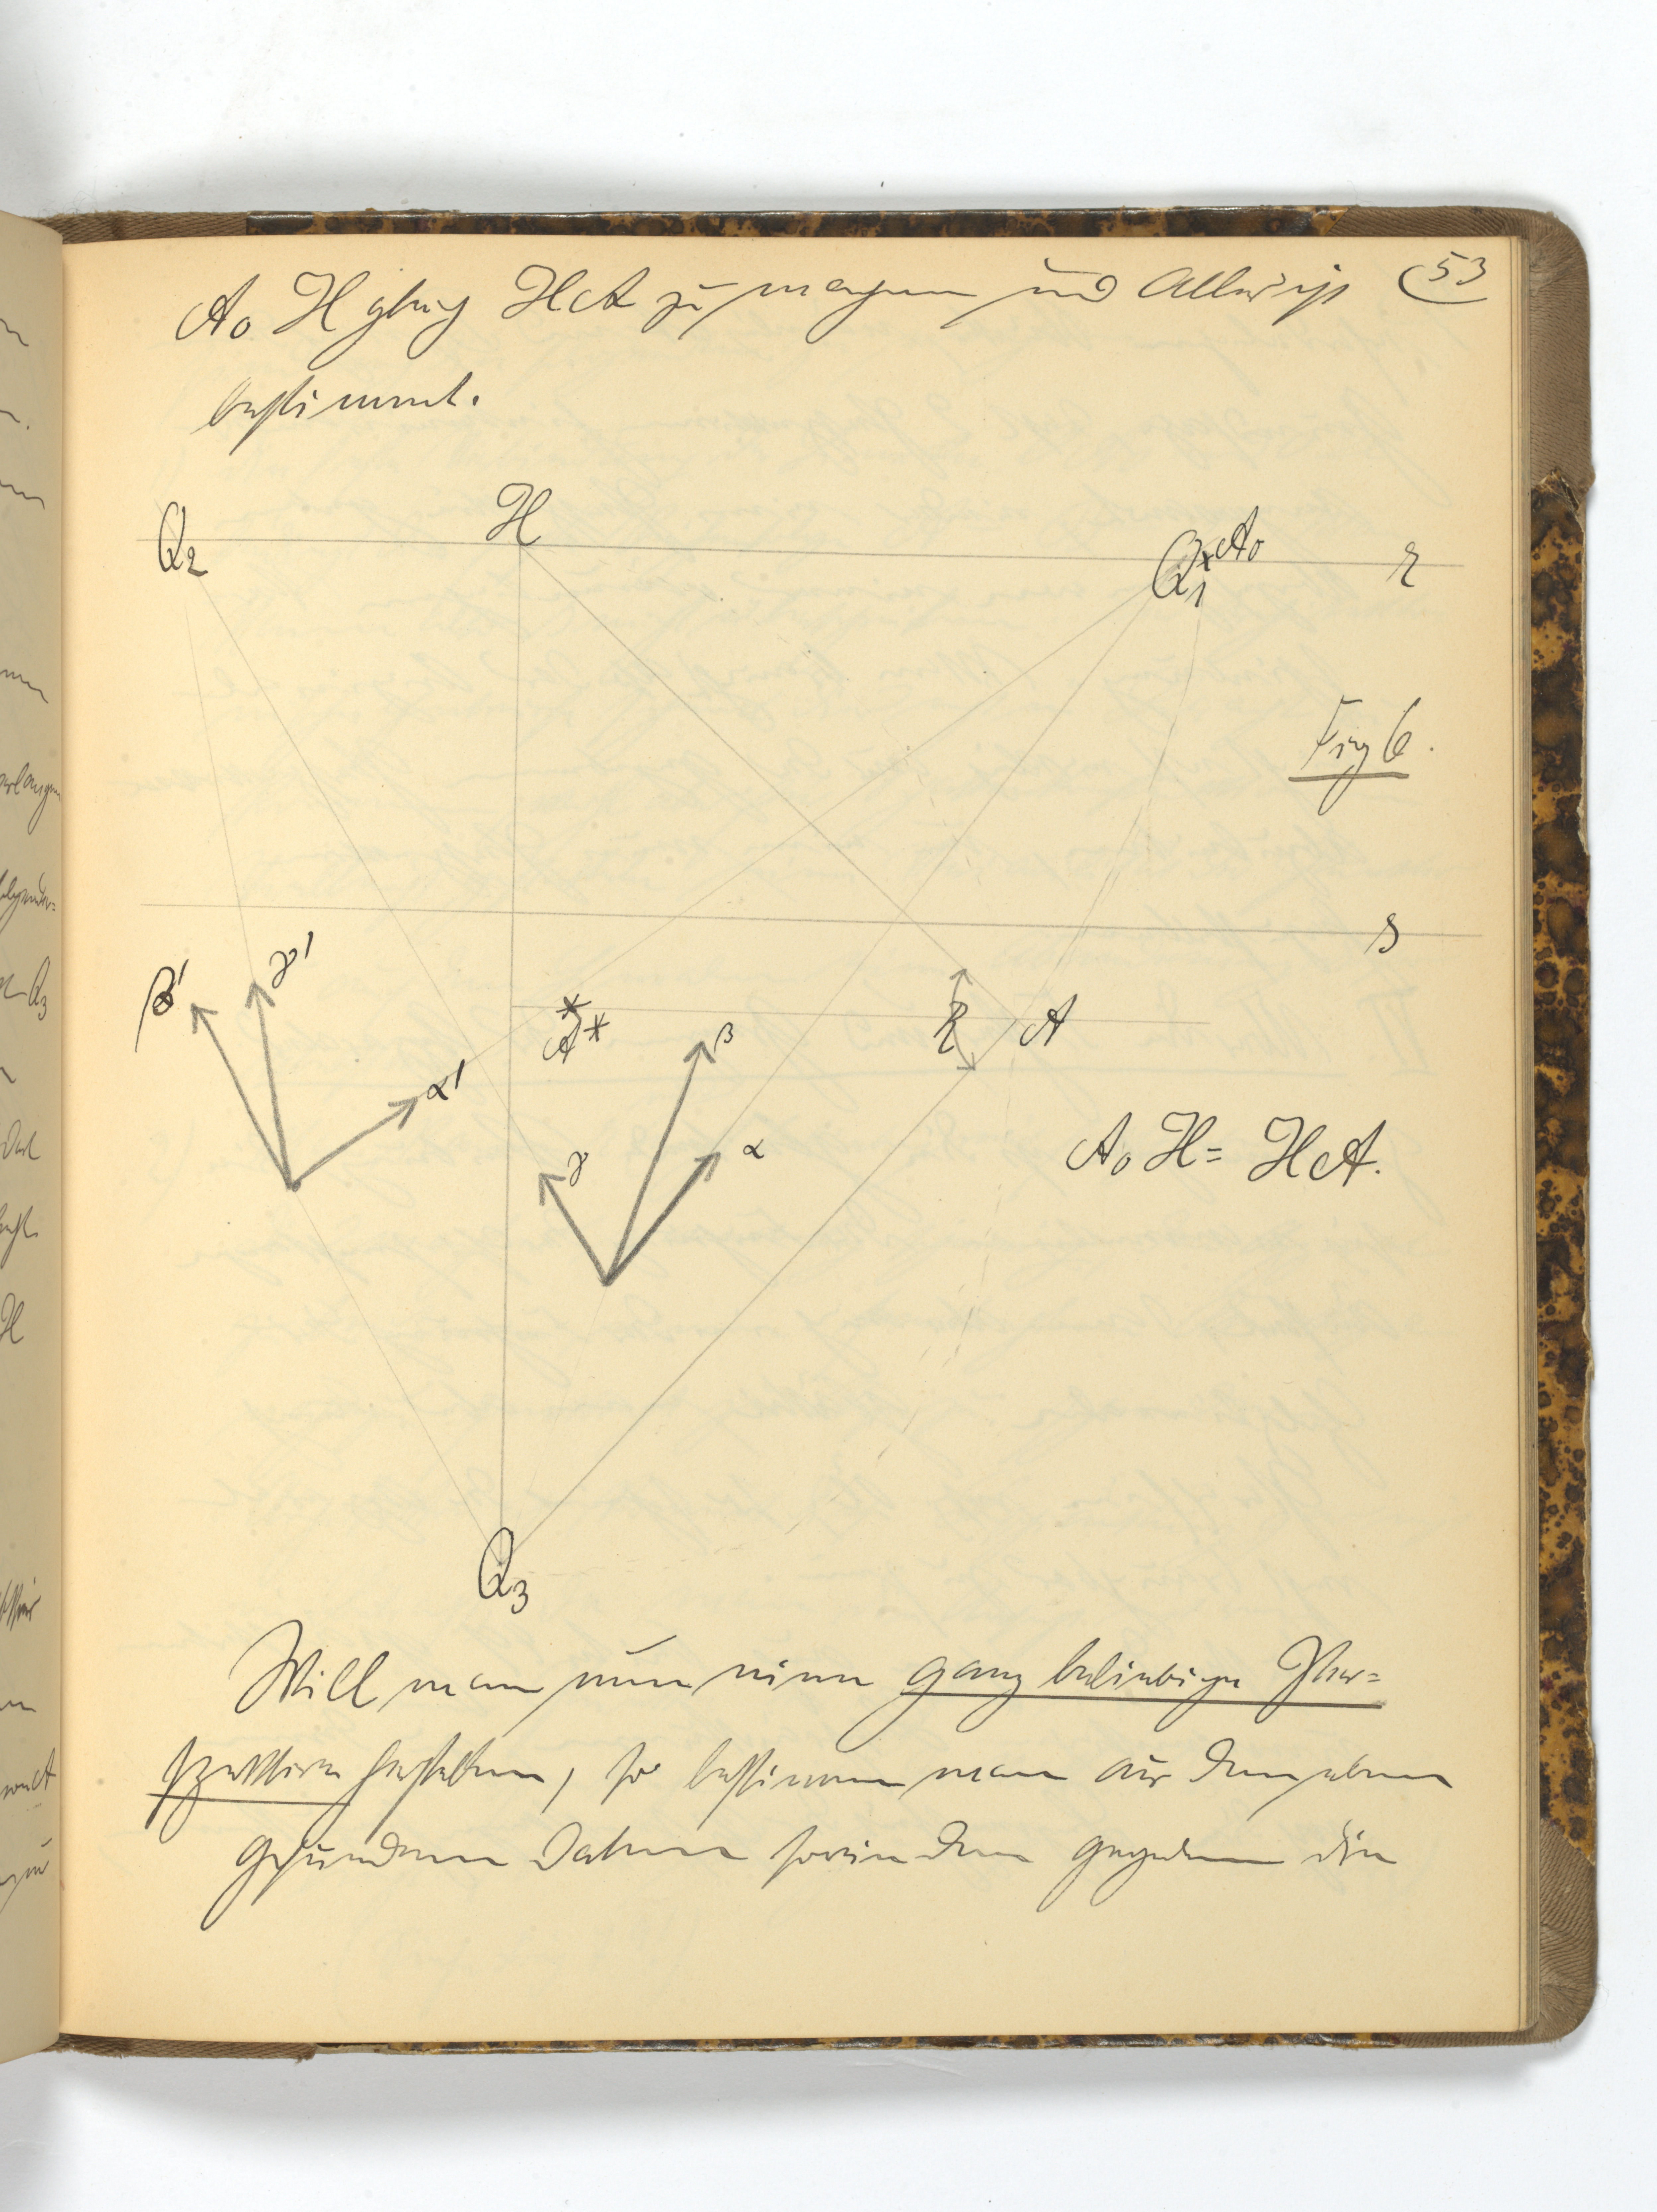 53
A₀ H gleich HA zu machen und Alles ist
bestimmt.
Q₂
H
Q₁
A₀
r
Fig 6.
s
β'
γ'
α'
A*
β
R
A
γ
α
A₀ H = HA.
Q₃
Will man nun einen ganz beliebigen Per=
spektiven herstellen, so bestimme man aus den eben
gefundenen Daten sowie den gegebenen die